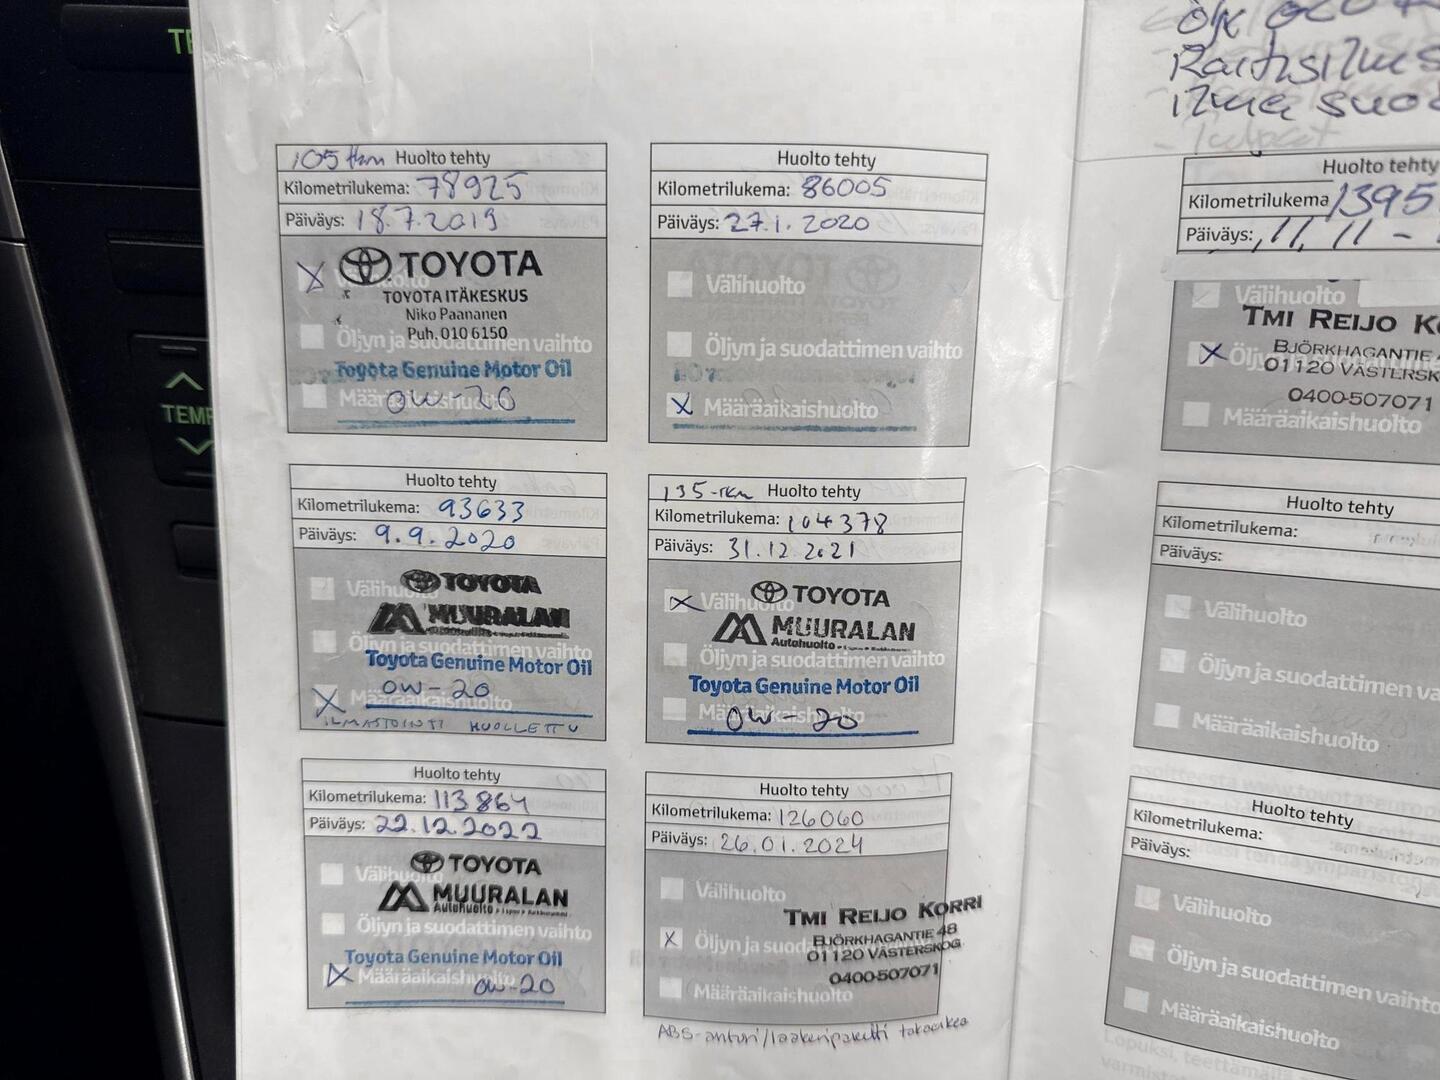 105 tkm Huolto tehty
Kilometrilukema: 78925
Päiväys: 18.7.2019
TOYOTA
TOYOTA ITÄKESKUS
Niko Paananen
Puh. 010 6150
Öljyn ja suodattimen vaihto
Toyota Genuine Motor Oil
Määräaikaishuolto
0W-20
Huolto tehty
Kilometrilukema: 86005
Päiväys: 27.1.2020
Välihuolto
Öljyn ja suodattimen vaihto
X Määräaikaishuolto
Huolto tehty
Kilometrilukema: 93633
Päiväys: 9.9.2020
Välihuolto
TOYOTA
MUURALAN
Öljyn ja suodattimen vaihto
Toyota Genuine Motor Oil
0W-20
X Määräaikaishuolto
ILMASTOINTI HUOLLETTU
135 tkm Huolto tehty
Kilometrilukema: 104378
Päiväys: 31.12.2021
X Välihuolto
TOYOTA
MUURALAN
Autohuolto
Öljyn ja suodattimen vaihto
Toyota Genuine Motor Oil
Määräaikaishuolto
0W-20
Huolto tehty
Kilometrilukema: 113864
Päiväys: 22.12.2022
Välihuolto
TOYOTA
MUURALAN
Autohuolto
Öljyn ja suodattimen vaihto
Toyota Genuine Motor Oil
X Määräaikaishuolto
0W-20
Huolto tehty
Kilometrilukema: 126060
Päiväys: 26.01.2024
Välihuolto
TMI REIJO KORRI
X Öljyn ja
BJÖRKHAGANTIE 48
01120 VÄSTERSKOG
0400-507071
Määräaikaishuolto
ABS-anturi/laakeripaketti takaoikea
Raitisilma
ilma
Huolto tehty
Kilometrilukema 1395
Päiväys: 11.11-
Välihuolto
TMI REIJO
BJÖRKHAGANTIE
X
01120
0400-507071
Määräaikaishuolto
Huolto tehty
Kilometrilukema:
Päiväys:
Välihuolto
Öljyn ja suodattimen
Määräaikaishuolto
Huolto tehty
Kilometrilukema:
Päiväys:
Välihuolto
Öljyn ja suodattimen vaihto
Määräaikaishuolto
TEMP